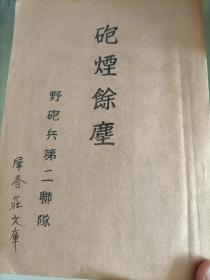 砲煙餘塵
野砲兵第二聯隊
犀春莊文庫